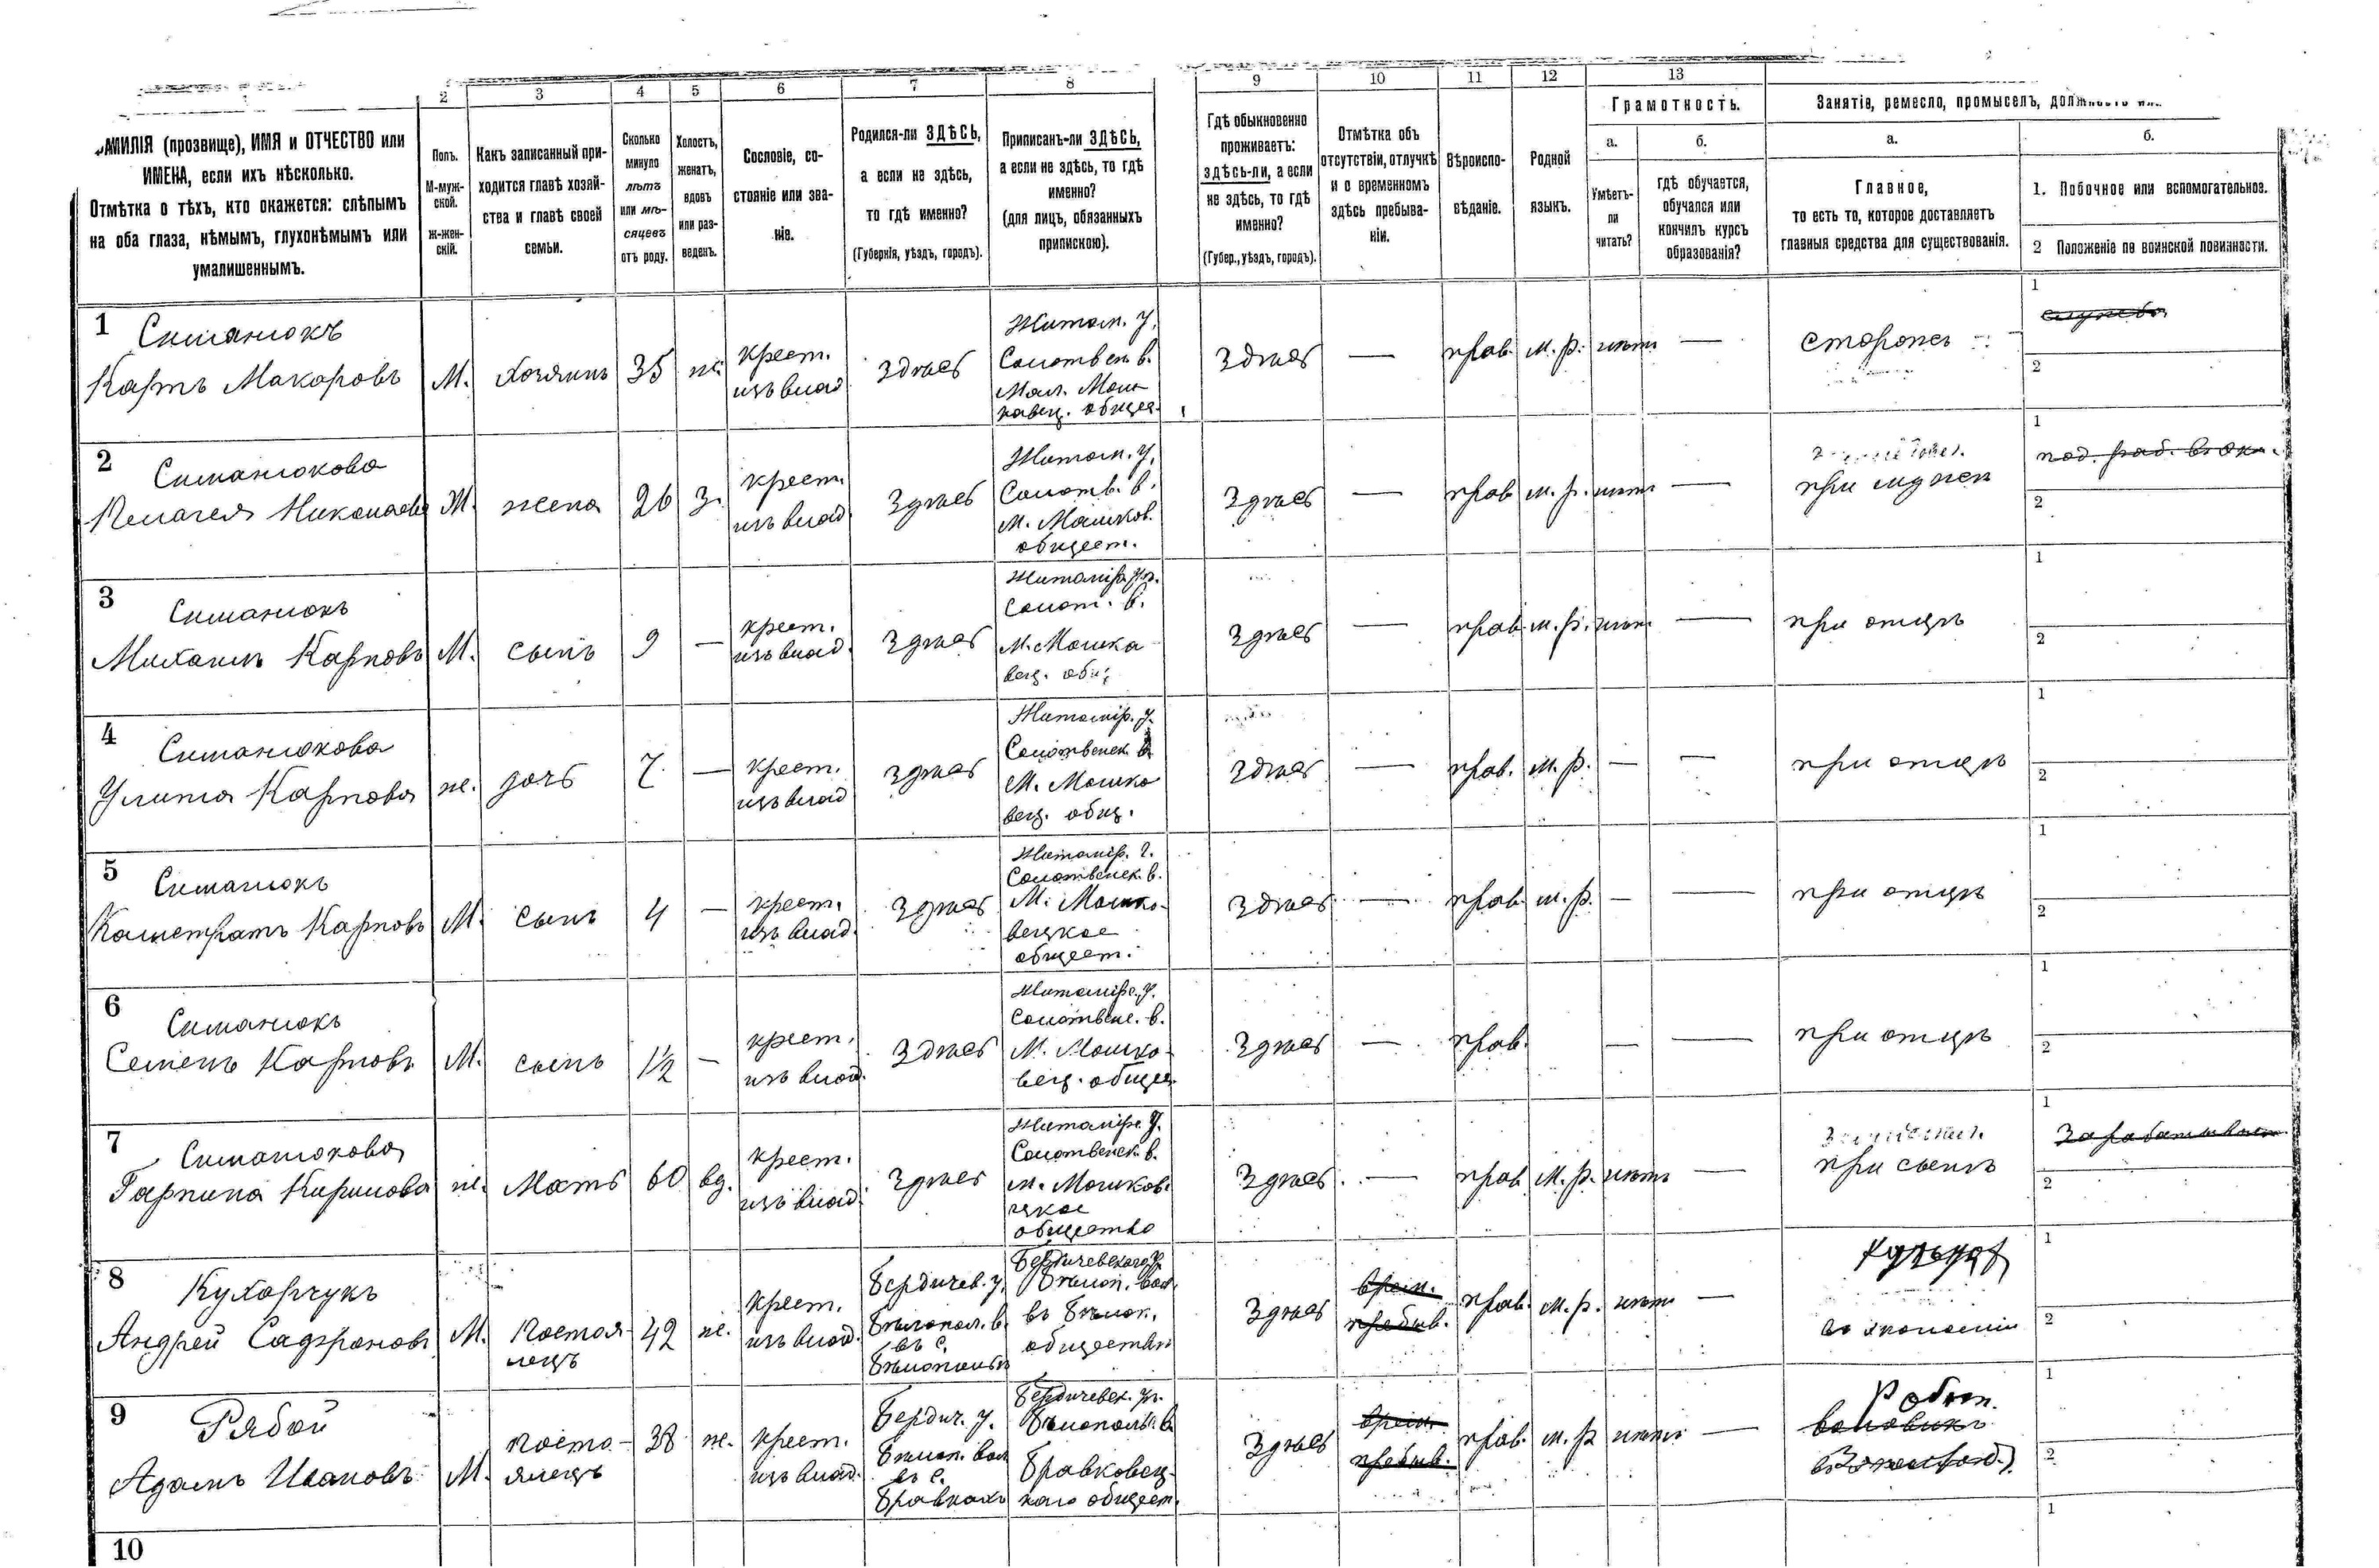 2 3 4 5 6 7 8 9 10 11 12 13
АМИЛІЯ (прозвище), ИМЯ и ОТЧЕСТВО или
ИМЕНА, если ихъ нѣсколько.
Отмѣтка о тѣхъ, кто окажется: слѣпымъ
на оба глаза, нѣмымъ, глухонѣмымъ или
умалишеннымъ.
Полъ.
М-муж-
ской.
Ж-жен-
скій.
Какъ записанный при-
ходится главѣ хозяй-
ства и главѣ своей
семьи.
Сколько
минуло
лѣтъ
или мѣ-
сяцевъ
отъ роду.
Холостъ,
женатъ,
вдовъ
или раз-
веденъ.
Сословіе, со-
стояніе или зва-
ніе.
Родился-ли ЗДѢСЬ,
а если не здѣсь,
то гдѣ именно?
(Губернія, уѣздъ, городъ).
Приписанъ-ли ЗДѢСЬ,
а если не здѣсь, то гдѣ
именно?
(для лицъ, обязанныхъ
припискою).
Гдѣ обыкновенно
проживаетъ:
здѣсь-ли, а если
не здѣсь, то гдѣ
именно?
(Губер., уѣздъ, городъ).
Отмѣтка объ
отсутствіи, отлучкѣ
и о временномъ
здѣсь пребыва-
ніи.
Вѣроиспо-
вѣданіе.
Родной
языкъ.
Грамотность.
а.
Умѣетъ-
ли
читать?
б.
гдѣ обучается,
обучался или
кончилъ курсъ
образованія?
Занятіе, ремесло, промыселъ,
а.
Главное,
то есть то, которое доставляетъ
главныя средства для существованія.
б.
1. Побочное или вспомогательное.
2 Положеніе по воинской повинности.
1 Симанюкъ
Карпъ Макаровъ
М.
Хозяинъ
35
ж.
крест.
изъ влад.
здѣсь
Житом. у.
Солотвен в.
Мал. Мош
ковец. общес.
здѣсь
—
прав.
м. р.
нѣтъ
—
сторожъ
1
служба
2
2 Симанюкова
Пелагея Николаева
Ж.
жена
26
з.
крест.
изъ влад.
здѣсь
Житом. у.
Солотв. в.
М. Машков.
общест.
здѣсь
—
прав
м. р.
нѣтъ
—
при мужѣ
1
2
3 Симанюкъ
Михаилъ Карповъ
М.
сынъ
9
—
крест.
изъ влад.
здѣсь
Солот. в.
М. Мошка
вец. общ.
здѣсь
—
прав.
м. р.
нѣтъ
—
при отцѣ
1
2
4 Симанюкова
Улита Карпова
ж.
дочь
7
—
крест.
изъ влад
здѣсь
Житомір. у.
Солотвенск. в
М. Мошко
вец. общ.
здѣсь
—
прав.
м. р.
—
—
при отцѣ
1
2
5 Симанюкъ
Калистратъ Карповъ
М.
сынъ
4
—
крест.
изъ влад.
здѣсь
Житомір. у.
Солотвенск. в.
М. Мошко-
вецкое
общест.
здѣсь
—
прав.
м. р.
—
—
при отцѣ
1
2
6 Симанюкъ
Семенъ Карповъ
М.
сынъ
1½
—
крест.
изъ влад.
здѣсь
Житомір. у.
Солотвенс. в.
М. Мошко-
вец. общес.
здѣсь
—
прав.
—
—
при отцѣ
1
2
7 Симанюкова
Гарпина Кирилова
ж.
мать
60
вд.
крест.
изъ влад.
здѣсь
Житомір. у.
Солотвенск. в.
М. Мошков.
цкое
общество
здѣсь
—
прав
м. р.
нѣтъ
—
при сынѣ
1
Зарабатывает
2
8 Кухарчукъ
Андрей Сафроновъ
М.
постоя-
лецъ
42
ж.
крест.
изъ влад.
Бердичев. у.
Бѣлопол. в.
въ с.
Бѣлополье
Бердичевскаго у.
Бѣлоп. вол.
въ Бѣлоп.
обществѣ
здѣсь
врем.
пребыв.
прав.
м. р.
нѣтъ
—
въ экономіи
1
2
9 Рябой
Адамъ Ивановъ
М.
посто-
ялецъ
38
ж.
крест.
изъ влад.
Бердич. у.
Бѣлоп. вол
въ с.
Бравкахъ
Бердичевск. у.
Бѣлопольс. в.
Бравковец-
каго общест.
здѣсь
врем.
пребыв.
прав.
м. р.
нѣтъ
—
воловикъ
1
2
10
1